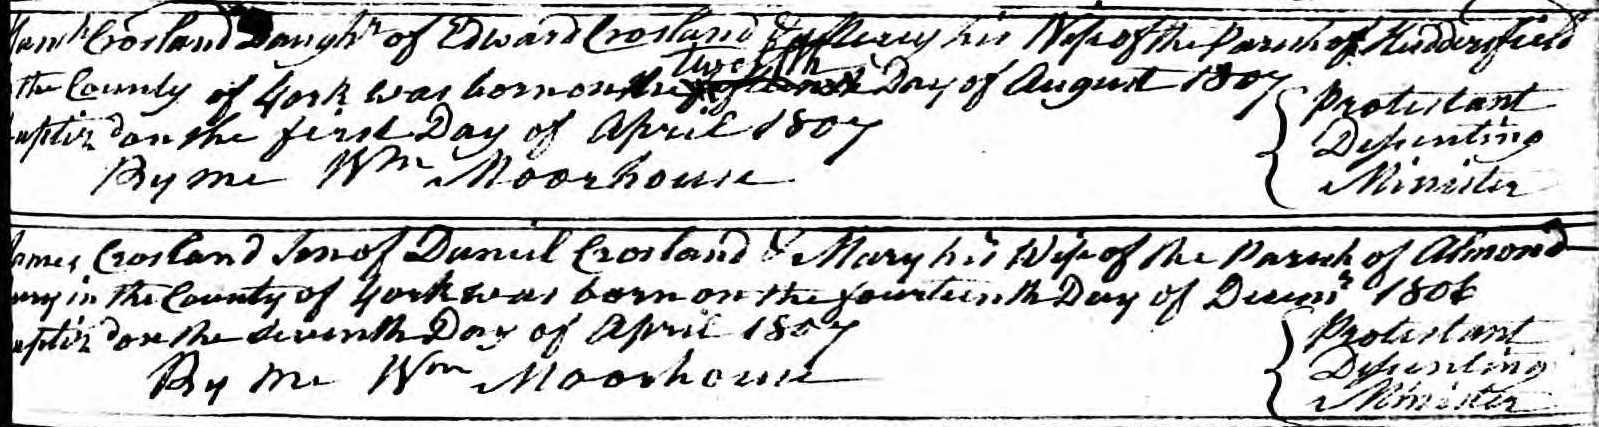 Crosland Daughr of Edward Crosland & his Wife of the Parish of Huddersfield
the County of York was born on the twelfth Day of August 1807
on the first Day of April 1807
By me Wm Moorhouse
Protestant
Dissenting
Minister
James Crosland Son of Daniel Crosland & Mary his Wife of the Parish of Almond
bury in the County of York was born on the fourteenth Day of Decemr 1806
baptiz'd on the seventh Day of April 1807
By me Wm Moorhouse
Protestant
Dissenting
Minister